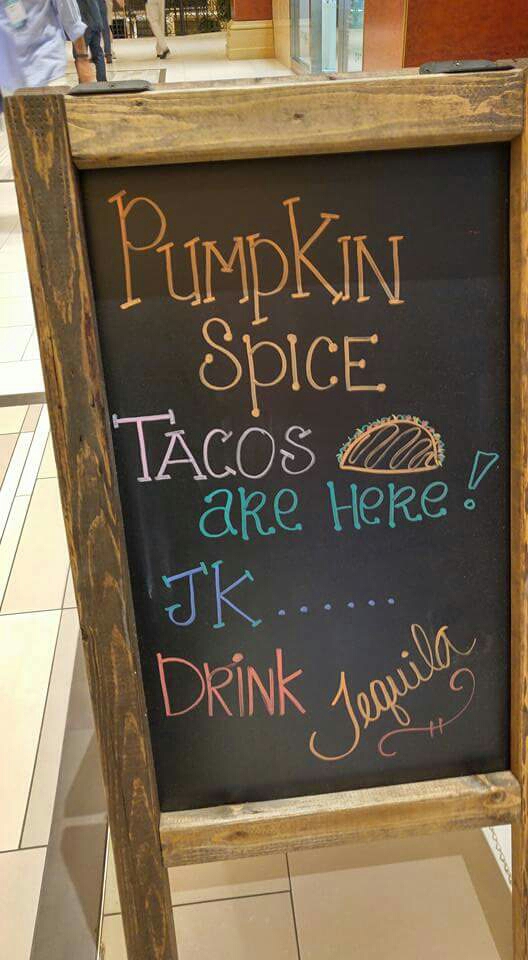 PUMPKIN
SPICE
TACOS
are Here!
JK.......
DRINK Tequila